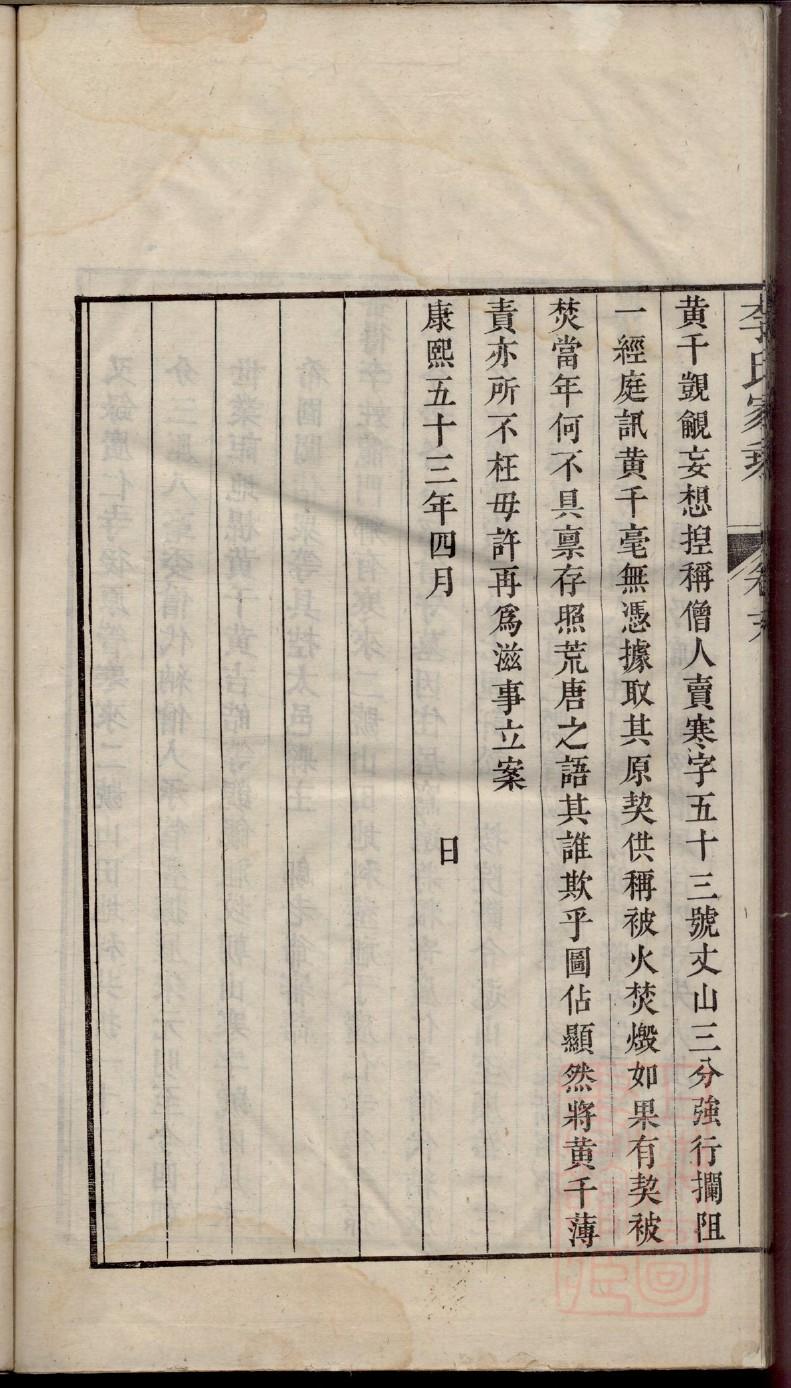 李氏家乘 卷六
黃千覬覦妄想揑稱僧人賣寒字五十三號丈山三分強行攔阻
一經庭訊黃千毫無憑據取其原契供稱被火焚燬如果有契被
焚當年何不具禀存照荒唐之語其誰欺乎圖佔顯然將黃千薄
責亦所不枉毋許再爲滋事立案
康熙五十三年四月 日